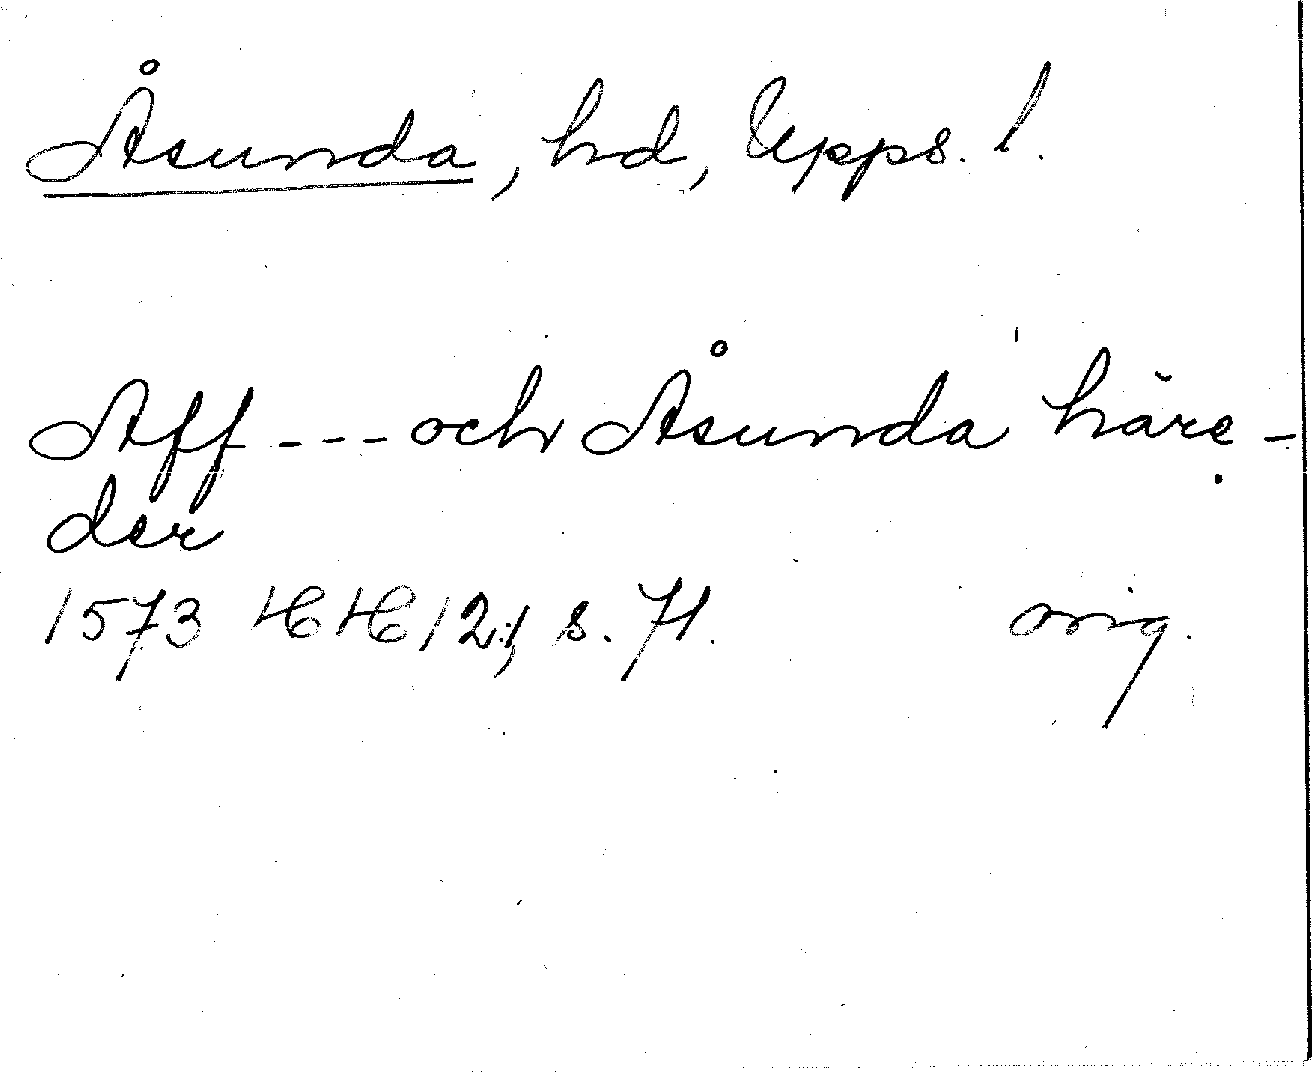 Åsunda, hd, Upps. l.
Aff --- och Åsunda häre-
der
1573 HH 12:1, s. 71. orig.